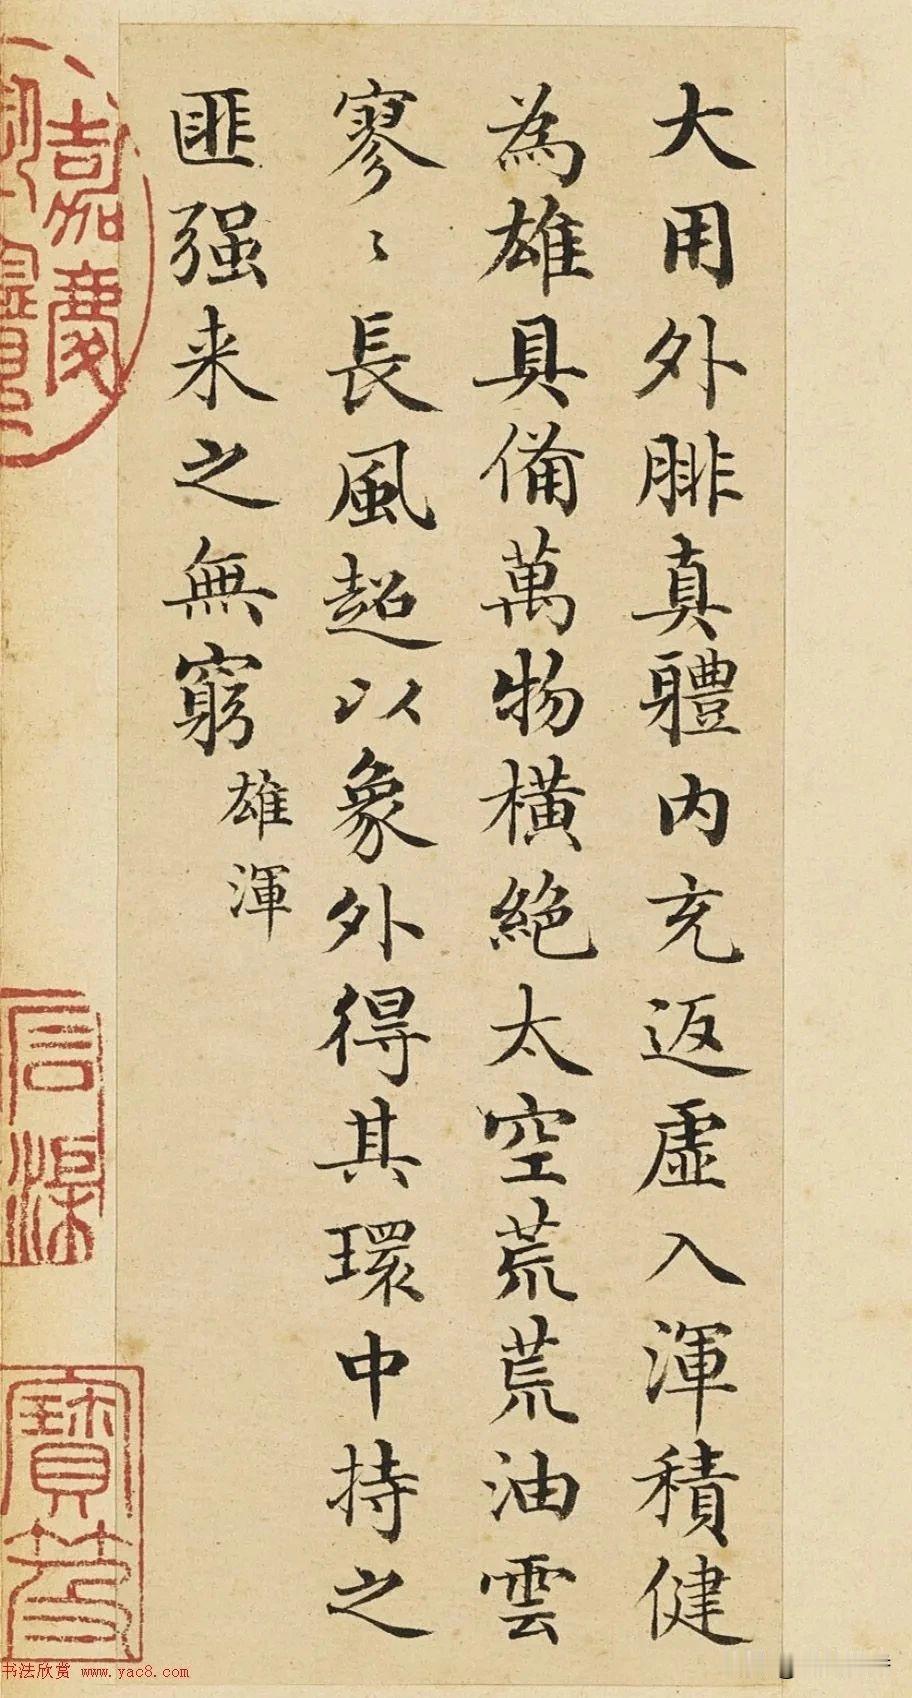 大用外腓真體内充返虛入渾積健
為雄具備萬物橫絕太空荒荒油雲
寥〻長風超以象外得其環中持之
匪强来之無窮
雄渾
嘉慶
寶笈
书法欣赏 www.yac8.com